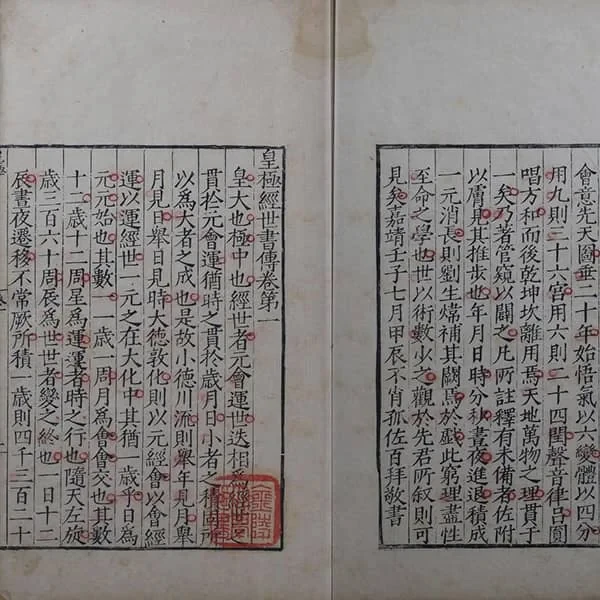 會意先天圖垂二十年始悟氣以六變體以四分
用九則三十六宮用六則二十四閏聲音律呂圓
唱方和而後乾坤坎離用焉天地萬物之理貫于
一矣乃著管窺以闢之凡所註釋有未備者佐附
以膚見其推步也年月日時分秋晝夜進退積成
一元消長則劉生補其闕焉於戲此窮理盡性
至命之學也世以術數少之觀於先君所叙則可
見矣嘉靖壬子七月甲辰不肖孤佐百拜敬書
皇極經世書傳卷第一
皇大也極中也經世者元會運世迭相爲經世之
貫於元會運猶時之貫於歲月日小者之積固所
以爲大者之成也是故小德川流則舉年見月舉
月見日舉日見時大德敦化則以元經會以會經
運以運經世一元之在大化中其猶一歲乎日爲
元元始也其數一一歲一周月爲會會交也其數
十二歲十二周星爲運運者時之行也隨天左旋
歲三百六十周辰爲世世者變之終也一日十二
辰晝夜遷移不常厥所積一歲則四千三百二十